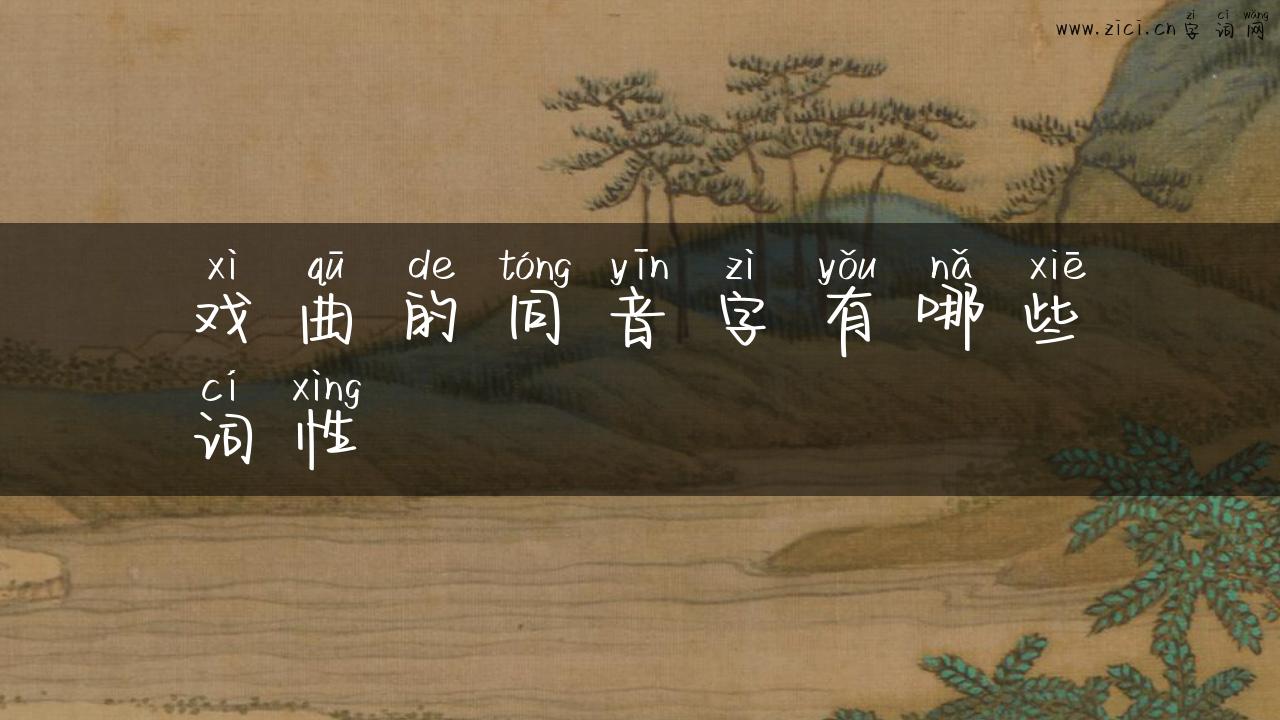 zì cí wǎng
www.zici.cn 字 词 网
xì qū de tóng yīn zì yǒu nǎ xiē
戏 曲 的 同 音 字 有 哪 些
cí xìng
词 性